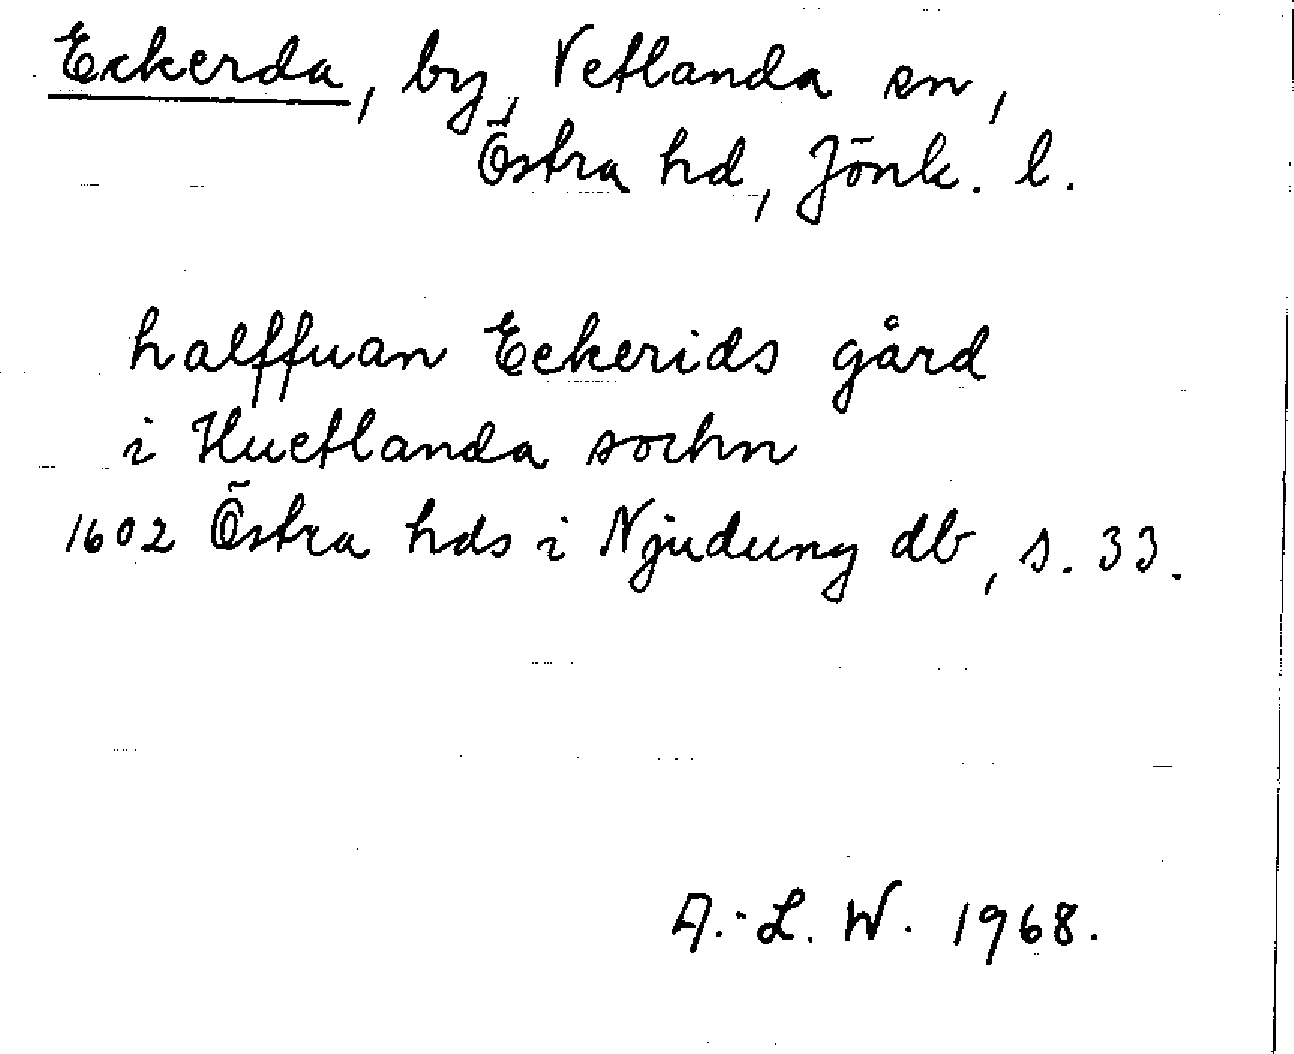 Eckerda, by, Vetlanda sn,
Östra hd, Jönk. l.
halffuan Eckerids gård
i Huetlanda sochn
1602 Östra hds i Njudung db, s. 33.
A.-L. W. 1968.